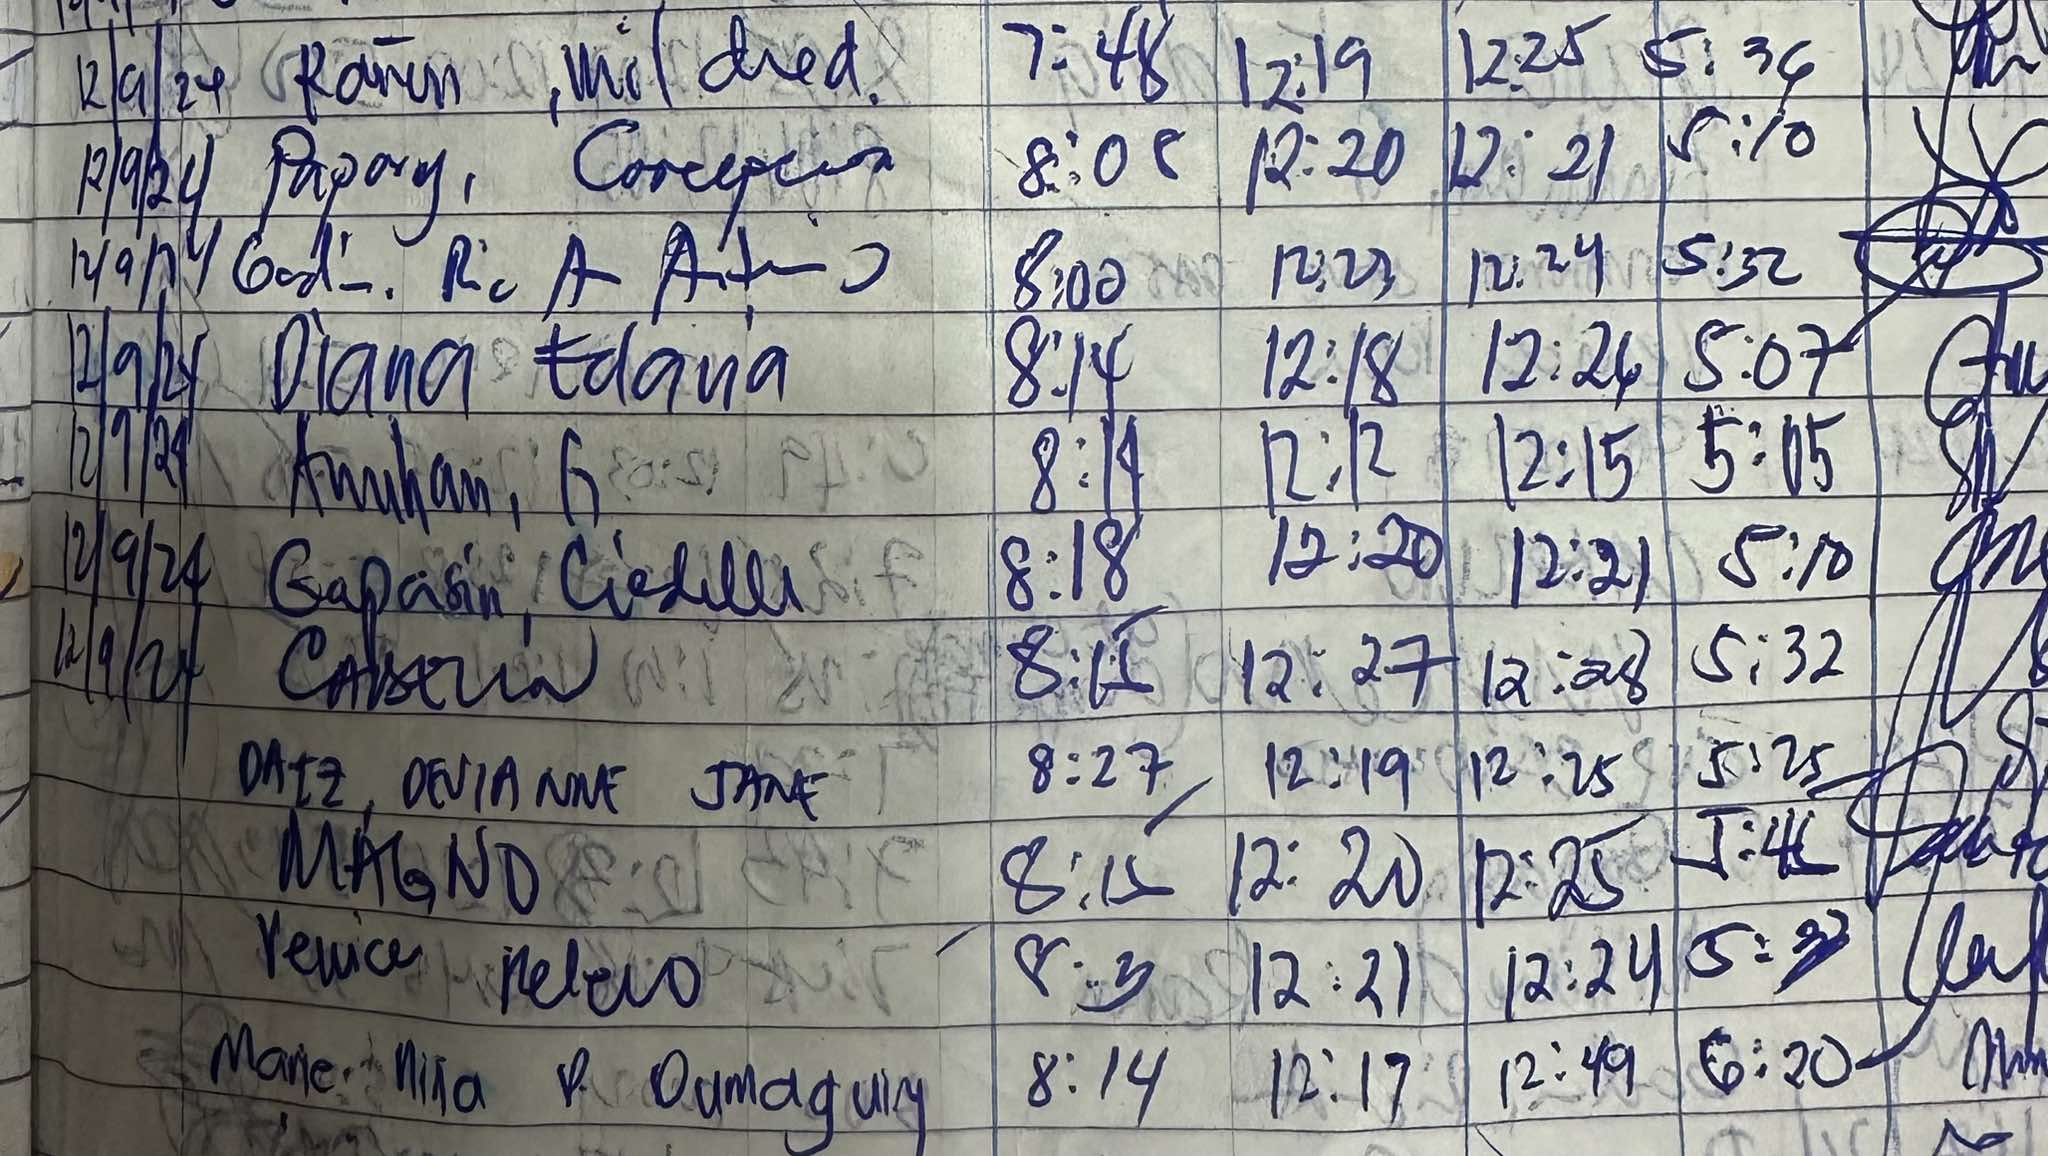 12/9/24 Rañin, Mildred. 7:48 12:19 12:25 5:36
12/9/24 Papary, Concepcion 8:08 12:20 12:21 5:10
12/9/24 Godin. Ric A 8:00 12:23 12:24 5:32
12/9/24 Diana Edaña 8:14 12:18 12:26 5:07
12/9/24 Anuhan, G 8:14 12:12 12:15 5:05
12/9/24 Gapasin, 8:18 12:20 12:21 5:10
12/9/24 8:15 12:27 12:28 5:32
DATZ, DEVIANNE JANE 8:27 12:19 12:25 5:25
MAGNO 8:15 12:20 12:25 5:45
Venice 12:21 12:24
Marie Niña P. Dumaguing 8:14 12:17 12:49 6:20